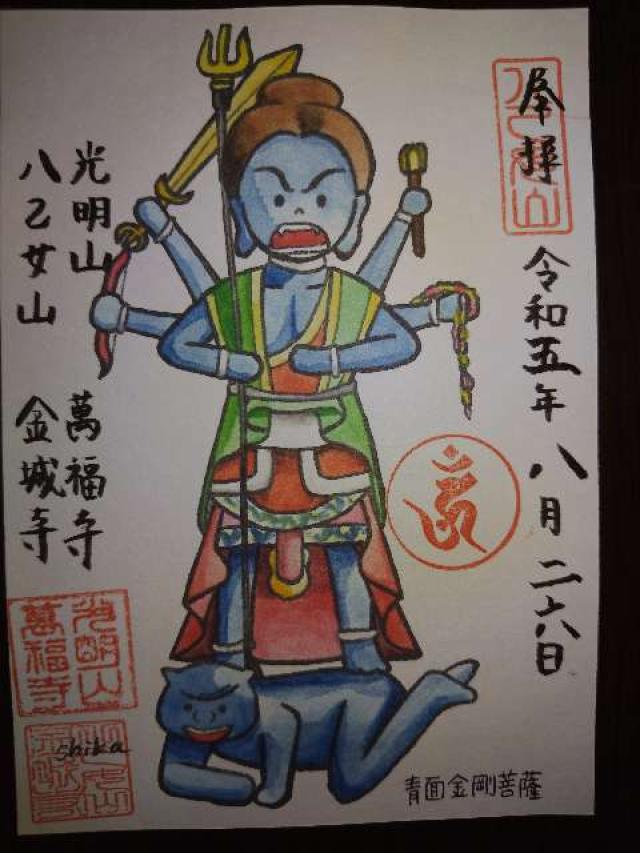 奉拝
令和五年八月二六日
光明山 萬福寺
八乙女山 金城寺
光明山
萬福寺
shika
青面金剛菩薩